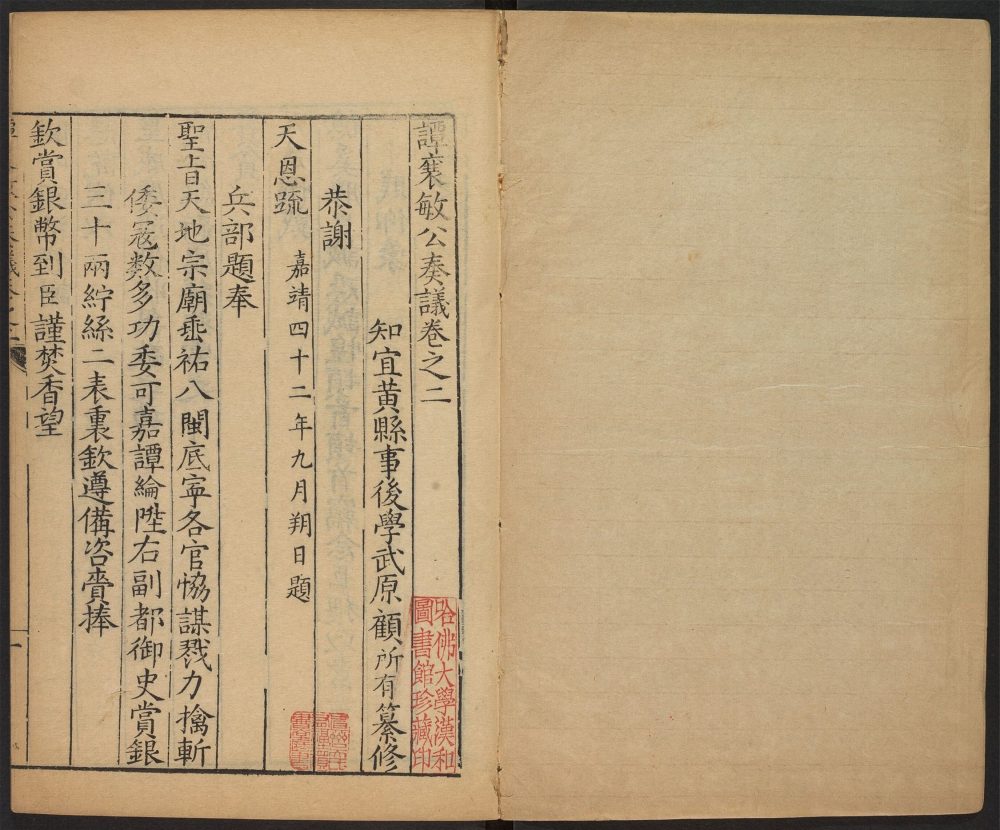 譚襄敏公奏議卷之二
知宜黄縣事後學武原顧所有纂修
恭謝
天恩疏 嘉靖四十二年九月朔日題
兵部題奉
聖旨天地宗廟垂祐八閩底寜各官恊謀戮力擒斬
倭寇数多功委可嘉譚綸陞右副都御史賞銀
三十兩紵絲二表裏欽遵備咨賫捧
欽賞銀幣到臣謹焚香望
哈佛大學漢和
圖書館珍藏印